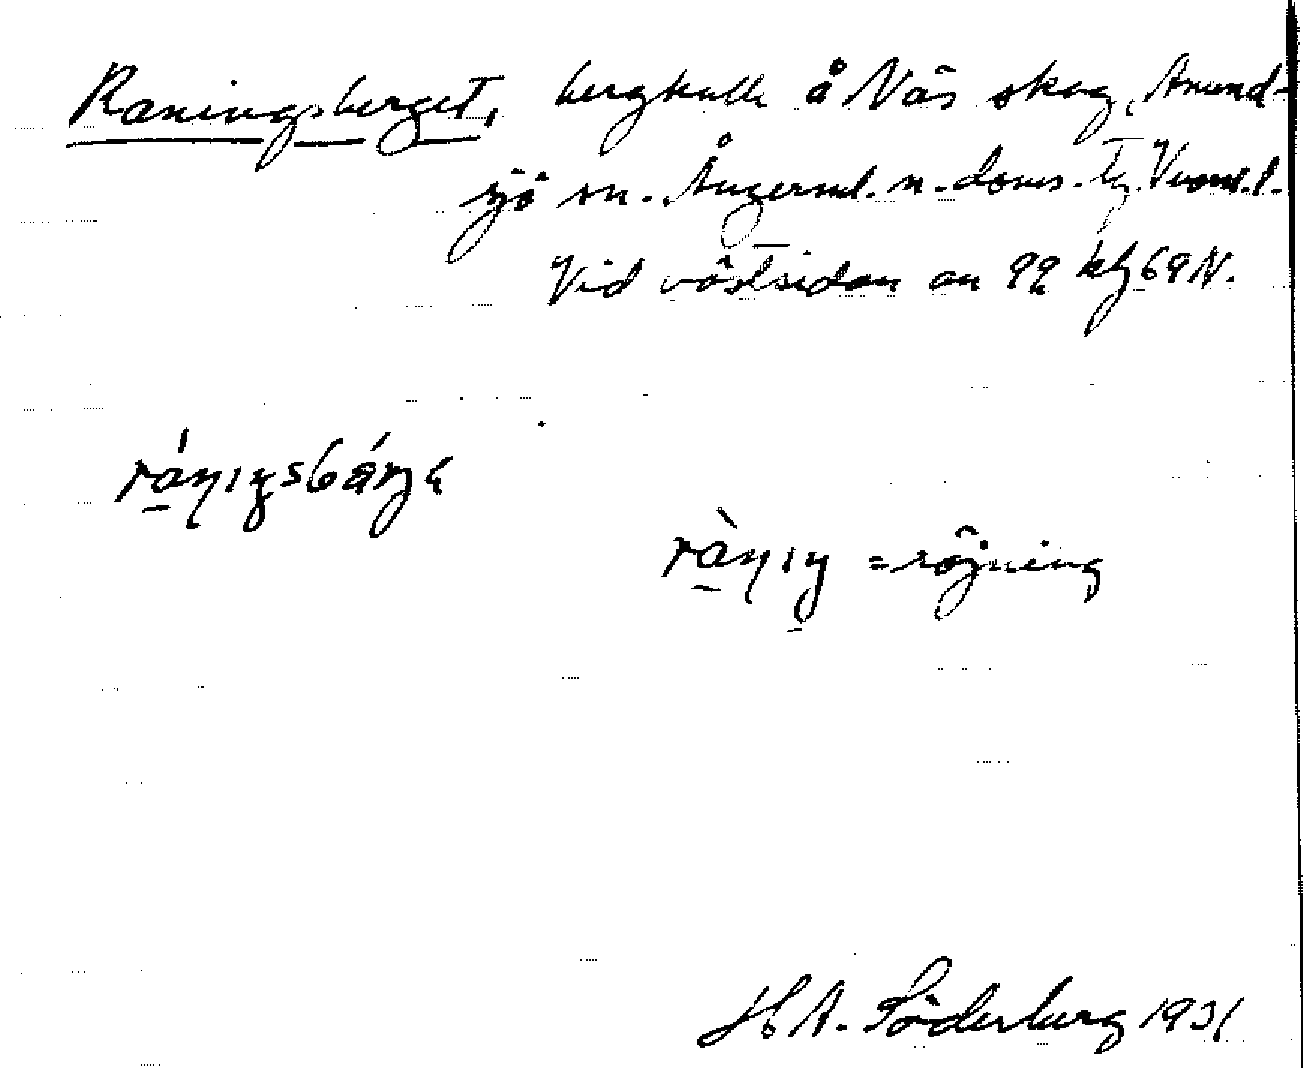 Raningsberget, bergkulle å Näs skog, Anund-
sjö sn. Ångerml. n. doms. Tg. Vnorrl. l.
Vid västsidan av 99 kfg 69 N.
rá̱ŋıŋsbárjɑ
rà̱ŋıŋ = röjning
H A. Söderberg 1931